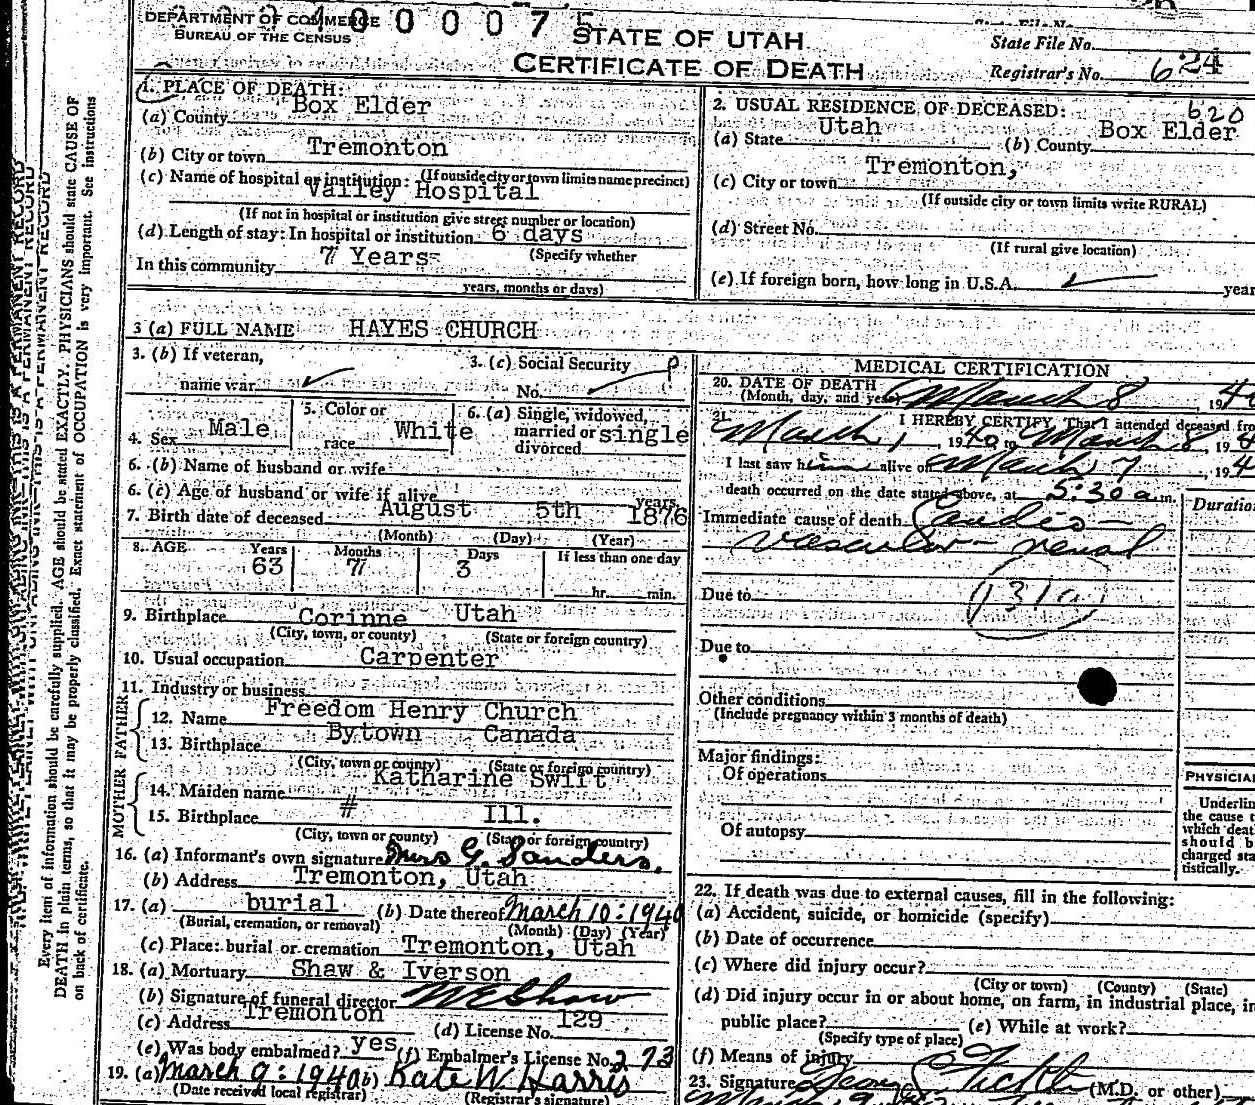 DEPARTMENT OF COMMERCE
BUREAU OF THE CENSUS
400075
STATE OF UTAH
CERTIFICATE OF DEATH
State File No.
Registrar's No. 624
1. PLACE OF DEATH:
(a) County Box Elder
(b) City or town Tremonton
(If outside city or town limits name precinct)
(c) Name of hospital or institution:
Valley Hospital
(If not in hospital or institution give street number or location)
(d) Length of stay: In hospital or institution 6 days
(Specify whether
In this community 7 Years-
years, months or days)
620
2. USUAL RESIDENCE OF DECEASED:
(a) State Utah (b) County Box Elder
(c) City or town Tremonton,
(If outside city or town limits write RURAL)
(d) Street No.
(If rural give location)
(e) If foreign born, how long in U.S.A. year
3 (a) FULL NAME HAYES CHURCH
3. (b) If veteran,
name war
3. (c) Social Security
No.
4. Sex Male
5. Color or
race White
6. (a) Single, widowed,
married or
divorced single
6. (b) Name of husband or wife
6. (c) Age of husband or wife if alive years
7. Birth date of deceased August 5th 1876
(Month) (Day) (Year)
8. AGE Years Months Days If less than one day
63 7 3 hr. min.
9. Birthplace Corinne Utah
(City, town, or county) (State or foreign country)
10. Usual occupation Carpenter
11. Industry or business
FATHER
12. Name Freedom Henry Church
13. Birthplace Bytown Canada
(City, town or county) (State or foreign country)
MOTHER
14. Maiden name Katharine Swift
15. Birthplace # Ill.
(City, town or county) (State or foreign country)
16. (a) Informant's own signature Mrs G. Sanders.
(b) Address Tremonton, Utah
17. (a) burial (b) Date thereof March 10:1940
(Burial, cremation, or removal) (Month) (Day) (Year)
(c) Place: burial or cremation Tremonton, Utah
18. (a) Mortuary Shaw & Iverson
(b) Signature of funeral director W E Shaw
(c) Address Tremonton (d) License No. 129
(e) Was body embalmed? yes (f) Embalmer's License No. 273
19. (a) March 9:1940 (b) Kate W Harris
(Date received local registrar) (Registrar's signature)
MEDICAL CERTIFICATION
20. DATE OF DEATH
(Month, day, and year) March 8, 1940
21. I HEREBY CERTIFY, That I attended deceased from
March 1, 1940 to March 8, 19
I last saw him alive on March 7, 194
death occurred on the date stated above, at 5:30 a.m.
Duration
Immediate cause of death Cardio-
vascular-renal
Due to 131a
Due to
Other conditions
(Include pregnancy within 3 months of death)
Major findings:
Of operations
Of autopsy
PHYSICIA
Underlin
the cause t
which deat
should b
charged sta
tistically.
22. If death was due to external causes, fill in the following:
(a) Accident, suicide, or homicide (specify)
(b) Date of occurrence
(c) Where did injury occur?
(City or town) (County) (State)
(d) Did injury occur in or about home, on farm, in industrial place, in
public place? (e) While at work?
(Specify type of place)
(f) Means of injury
23. Signature (M.D. or other)
Every item of information should be carefully supplied. AGE should be stated EXACTLY. PHYSICIANS should state CAUSE OF
DEATH in plain terms, so that it may be properly classified. Exact statement of OCCUPATION is very important. See instructions
on back of certificate.